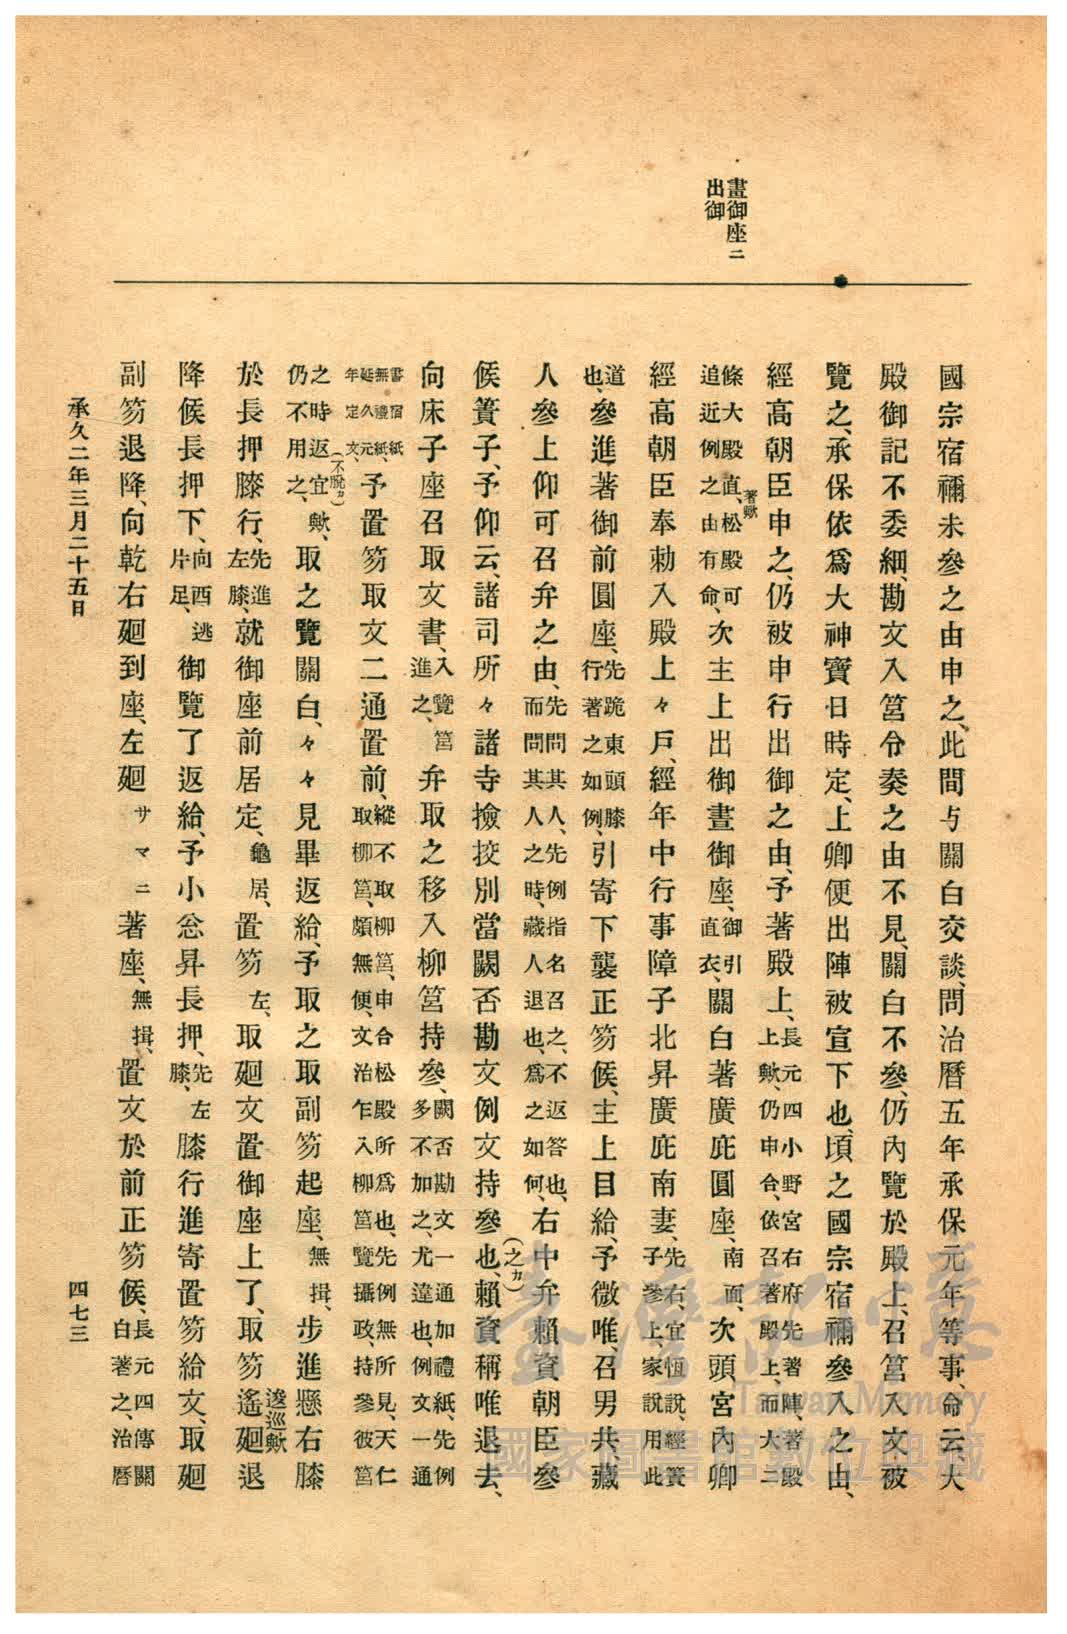 晝御座ニ
出御
國宗宿禰未參之由申之、此間与關白交談、問治曆五年承保元年等事、命云、大
殿御記不委細、勘文入筥令奏之由不見、關白不參、仍內覽於殿上、召筥入文被
覽之、承保依爲大神寶日時定、上卿便出陣被宣下也、頃之國宗宿禰參入之由、
經高朝臣申之、仍被申行出御之由、予著殿上、長元四小野宮右府先著陣、著殿上歟、仍申合、依召著殿上、而大二
條大殿直著歟、松殿可追近例之由有命、次主上出御晝御座、御引直衣、關白著廣庇圓座、南面、次頭宮內卿
經高朝臣奉勅入殿上々戶、經年中行事障子北昇廣庇南妻、先右、宜恆說、經簀子參上、家說用此
道也、參進著御前圓座、先跪東頭膝行著之如例、引寄下襲正笏候、主上目給、予微唯、召男共、藏
人參上仰可召弁之由、先問其人、先例指名召之、不返答也、而問其人之時、藏人退也、爲之如何、右中弁賴資朝臣參
候簀子、予仰云、諸司所々諸寺撿挍別當闕否勘文例文持參(之カ)也、賴資稱唯退去、
向床子座召取文書、入覽筥進之、弁取之移入柳筥持參、闕否勘文一通加禮紙、先例多不加之、尤違也、例文一通
書宿紙、無禮紙、延久元年定文、予置笏取文二通置前、縱不取柳筥、申合松殿所爲也、先例無所見、天仁取柳筥、頗無便、文治乍入柳筥覽攝政、持參彼筥
之時返宜(不脫カ)歟、仍不用之、取之覽關白、々々見畢返給、予取之取副笏起座、無揖、步進懸右膝
於長押膝行、先進左膝、就御座前居定、龜居、置笏左、取廻文置御座上了、取笏遙逡巡歟廻退
降候長押下、向西逃片足、御覽了返給、予小忩昇長押、先左膝、膝行進寄置笏給文、取廻
副笏退降、向乾右廻到座、左廻サマニ著座、無揖、置文於前正笏候、長元四傳關白著之、治曆
承久二年三月二十五日
四七三
臺灣記憶
Taiwan Memory
國家圖書館數位典藏